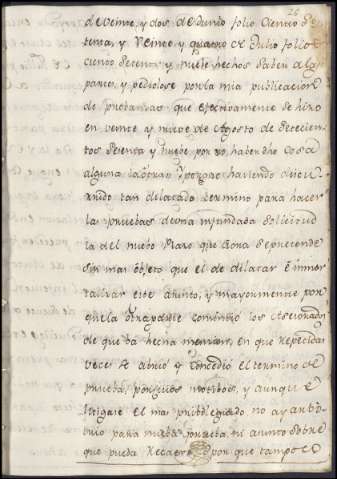 26
de veinte, y dos, de Junio folio ciento se
tenta, y veinte y quatro de Julio folio
ciento setenta y nuebe hechos saber a la
parte, y pidiose por la mia publicacion
de probanzas que efectivamente se hizo
en veinte y nueve de Agosto de setecien
tos setenta y nuebe, por no haber dho cosa
alguna la otra porque haviendo discu
rrido tan dilatado termino para hacer
las pruebas de una infundada solicitud
la del nuebo Plazo que ahora se pretende
sin mas objeto que el de dilatar e immor
talizar este asunto, y mayormente por
que la otra parte consintio los
de que ba hecha mension, en que repetidas
veces se abrio y concedio el termino de
prueba, por que
litigare el mas pribilegiado no ay
para ni asunto sobre
que pueda recaer por que tampoco